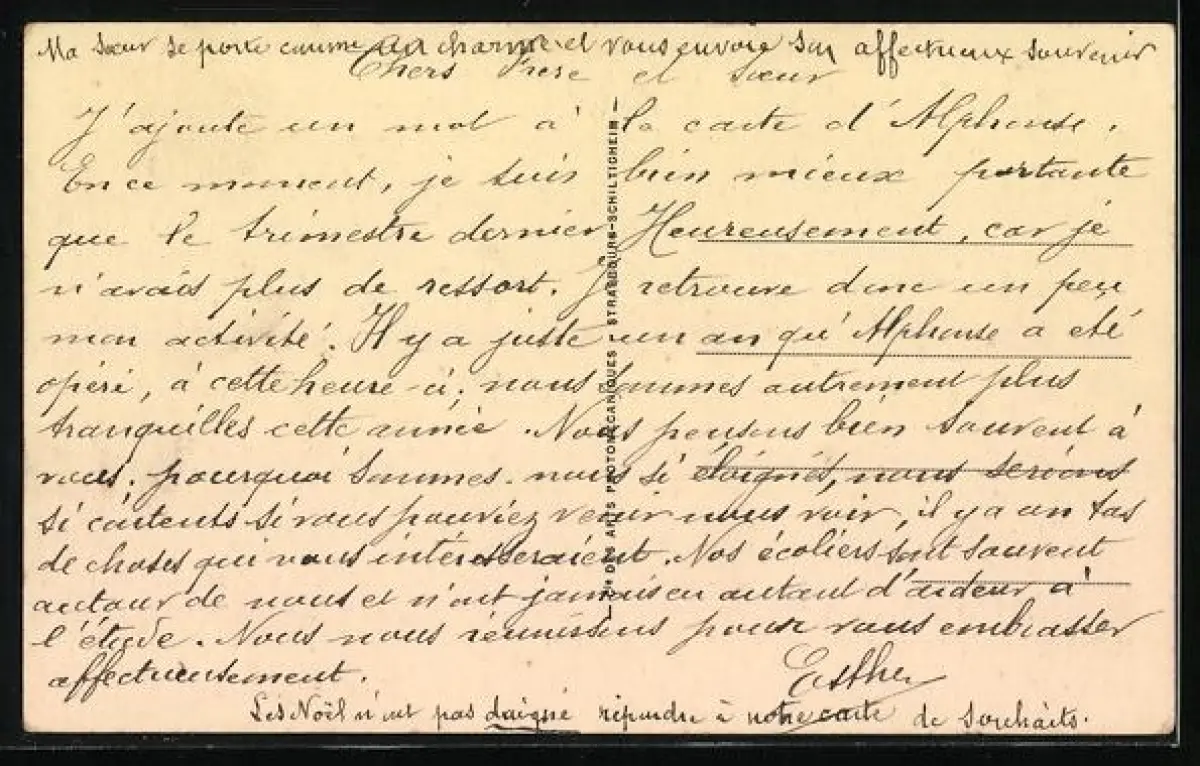 Ma sœur se porte comme un charme et vous envoie son affectueux souvenir
Chers Frère et Sœur
J'ajoute un mot à la carte d'Alphonse.
En ce moment, je suis bien mieux portante
que le trimestre dernier Heureusement, car je
n'avais plus de ressort. Je retrouve donc un peu
mon activité. Il y a juste un an qu'Alphonse a été
opéré, à cette heure-ci; nous sommes autrement plus
tranquilles cette année. Nous pensons bien souvent à
vous. pourquoi sommes-nous si éloignés, nous serions
si contents si vous pouviez venir nous voir, il y a un tas
de choses qui vous intéresseraient. Nos écoliers sont souvent
autour de nous et n'ont jamais eu autant d'ardeur à
l'étude. Nous nous réunissons pour vous embrasser
affectueusement.
Esther
Les Noël n'ont pas daigné répondre à notre carte de souhaits.
DES ARTS PHOTOMÉCANIQUES - STRASBOURG-SCHILTIGHEIM